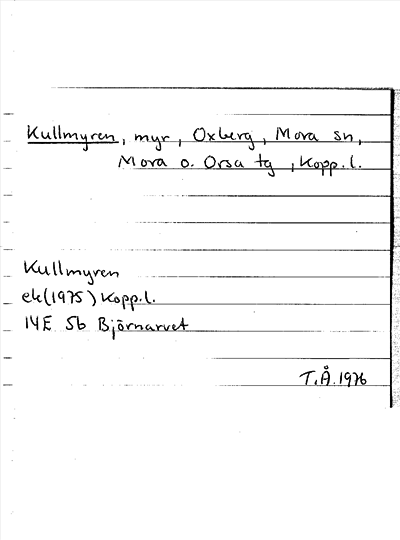 Kullmyren, myr, Oxberg, Mora sn,
Mora o. Orsa tg, Kopp.l.
Kullmyren
ek(1975) Kopp.l.
14E 5b Björnarvet
T.Å. 1976